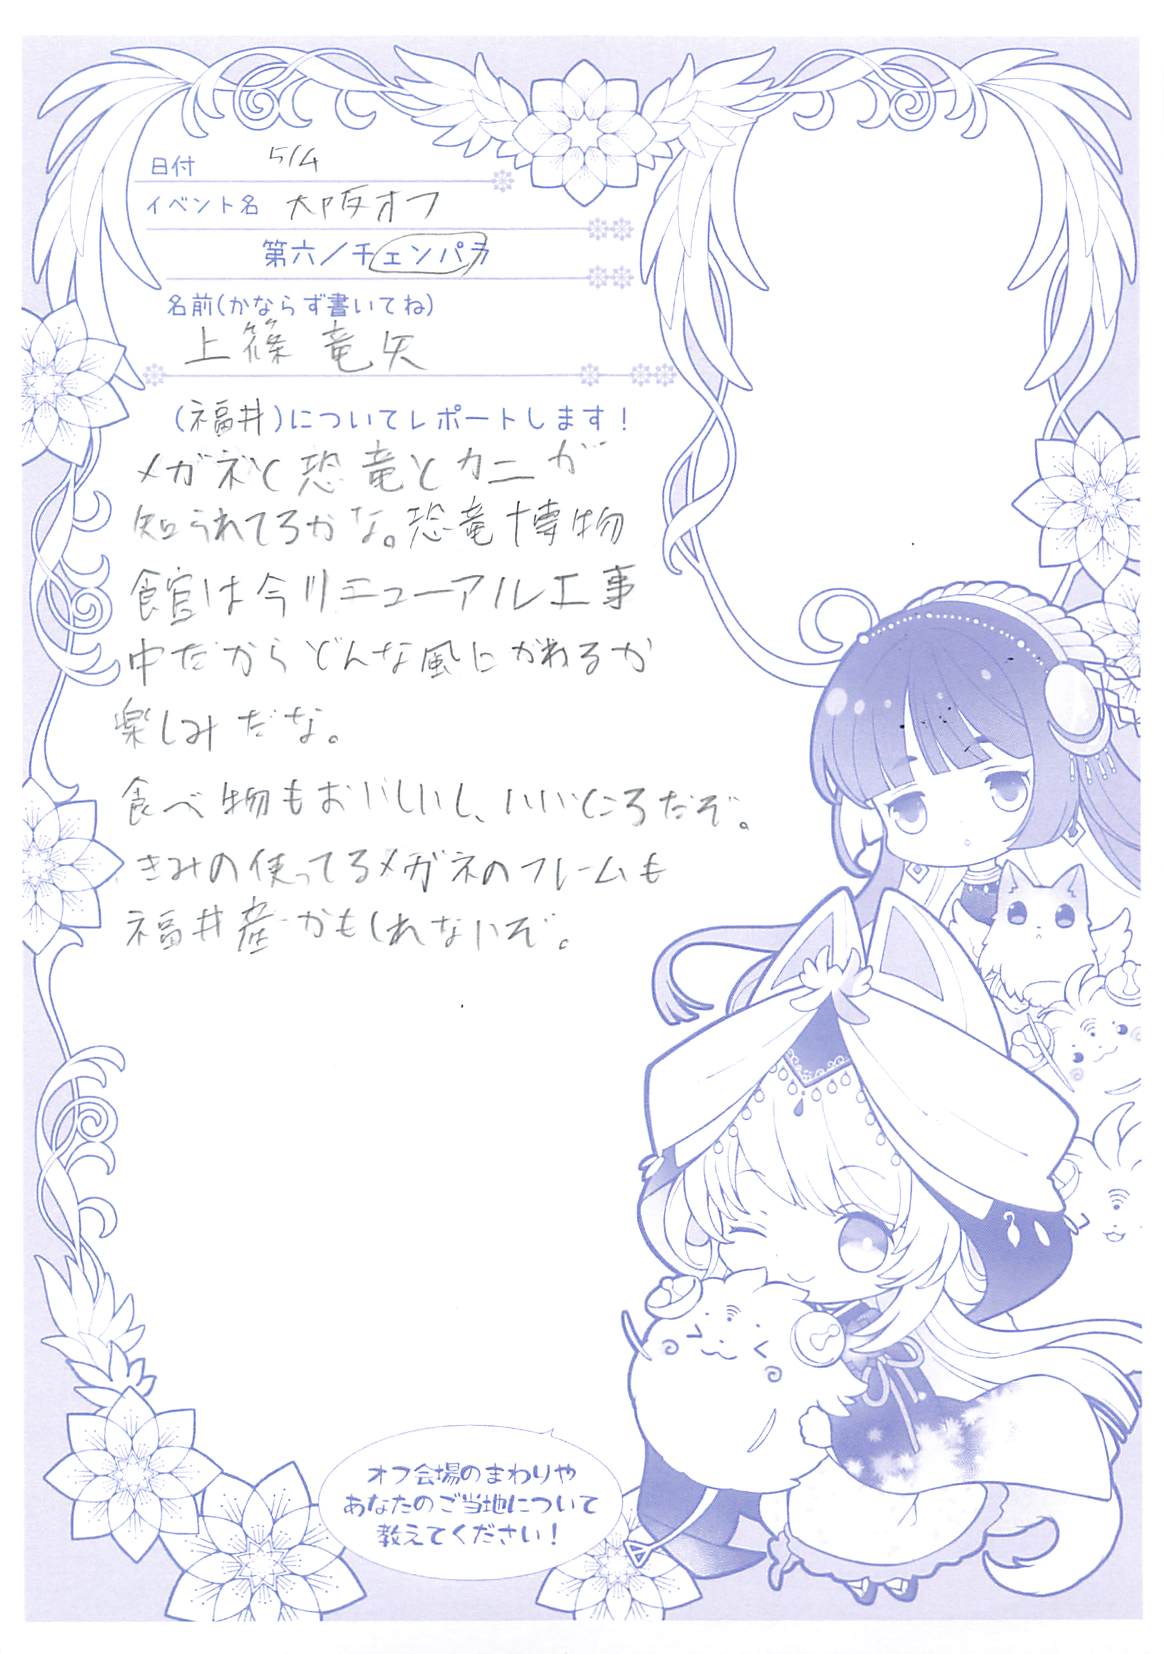 日付 5/4
イベント名 大阪オフ
第六/チェンパラ
名前(かならず書いてね)
上篠 竜矢
(福井)についてレポートします!
メガネと恐竜とカニが
知られてるかな。恐竜博物
館は今リニューアル工事
中だからどんな風にかわるか
楽しみだな。
食べ物もおいしいし、いいところだぞ。
きみの使ってるメガネのフレームも
福井産かもしれないぞ。
オフ会場のまわりや
あなたのご当地について
教えてください!